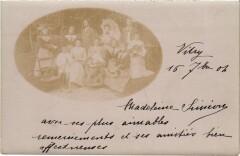 Vitry
15 7bre 04
Madeleine
avec ses plus aimables
remerciements et ses amitiés bien
affectueuses